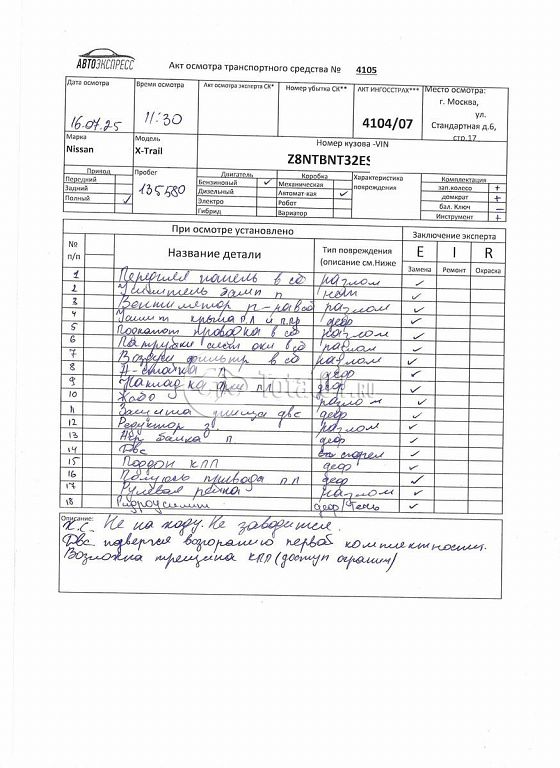 АВТОЭКСПРЕСС
Акт осмотра транспортного средства № 4105
Дата осмотра
16.07.25
Время осмотра
11:30
Акт осмотра эксперта СК*
Номер убытка СК**
АКТ ИНГОССТРАХ***
4104/07
Место осмотра:
г. Москва,
ул.
Стандартная д.6,
стр.17
Марка
Nissan
Модель
X-Trail
Номер кузова -VIN
Z8NTBNT32ES
Привод
Передний
Задний
Полный ✓
Пробег
135580
Двигатель
Бензиновый ✓
Дизельный
Электро
Гибрид
Коробка
Механическая
Автомат-кая ✓
Робот
Вариатор
Характеристика
повреждения
Комплектация
зап.колесо +
домкрат +
бал. Ключ –
Инструмент +
При осмотре установлено
Заключение эксперта
№ п/п
Название детали
Тип повреждения (описание см.Ниже
E I R
Замена Ремонт Окраска
1 Передняя панель в сб разлом ✓
2 Усилитель замп п нет ✓
3 Вентилятор п-ра в сб разлом ✓
4 Защит крыла п л и п.пр деф ✓
5 Подкапот проводка в сб разлом ✓
6 Патрубки сист охл в сб разлом ✓
7 Возду фильтр в сб разлом ✓
8 п деф ✓
9 Накладка п л деф ✓
10 Жабо разлом ✓
11 Защита днища двс деф ✓
12 Редуктор з разлом ✓
13 балка п деф ✓
14 Двс ✓
15 Поддон КПП деф ✓
16 Полуось привода п л деф ✓
17 Рулевая рейка разлом ✓
18 деф/течь ✓
Описание:
К.С. Не на ходу. Не заводится.
Двс подвергся возгоранию первой комплектности.
Возможна трещина КПП (доступ огранич)